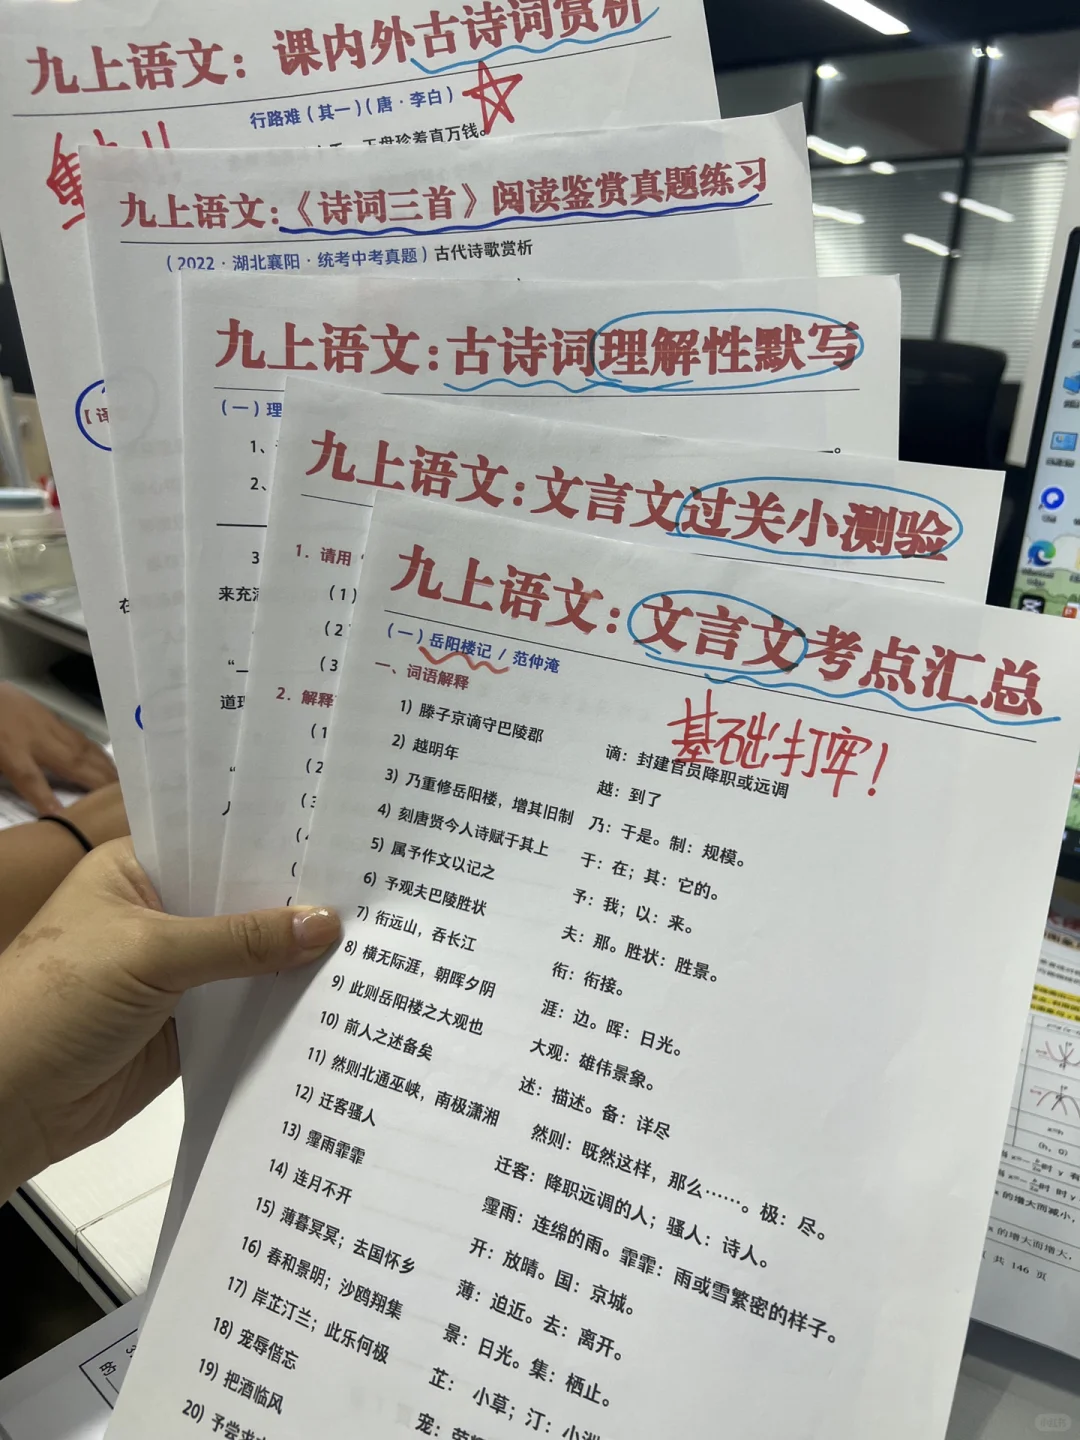 九上语文：课内外古诗词赏析
行路难（其一）（唐·李白）
玉盘珍羞直万钱。
九上语文：《诗词三首》阅读鉴赏真题练习
（2022·湖北襄阳·统考中考真题）古代诗歌赏析
九上语文：古诗词理解性默写
（一）理
1、
2、
3
来充
道理
九上语文：文言文过关小测验
1. 请用
（1）
（2
（3
2. 解释
（1
（2
九上语文：文言文考点汇总
（一）岳阳楼记 / 范仲淹
基础打牢！
一、词语解释
1）滕子京谪守巴陵郡 谪：封建官员降职或远调
2）越明年 越：到了
3）乃重修岳阳楼，增其旧制 乃：于是。制：规模。
4）刻唐贤今人诗赋于其上 于：在；其：它的。
5）属予作文以记之 予：我；以：来。
6）予观夫巴陵胜状 夫：那。胜状：胜景。
7）衔远山，吞长江 衔：衔接。
8）横无际涯，朝晖夕阴 涯：边。晖：日光。
9）此则岳阳楼之大观也 大观：雄伟景象。
10）前人之述备矣 述：描述。备：详尽
11）然则北通巫峡，南极潇湘 然则：既然这样，那么……。极：尽。
12）迁客骚人 迁客：降职远调的人；骚人：诗人。
13）霪雨霏霏 霪雨：连绵的雨。霏霏：雨或雪繁密的样子。
14）连月不开 开：放晴。国：京城。
15）薄暮冥冥；去国怀乡 薄：迫近。去：离开。
16）春和景明；沙鸥翔集 景：日光。集：栖止。
17）岸芷汀兰；此乐何极 芷： 小草；汀：小洲
18）宠辱偕忘 宠：荣
19）把酒临风
20）予尝求
共 146 页